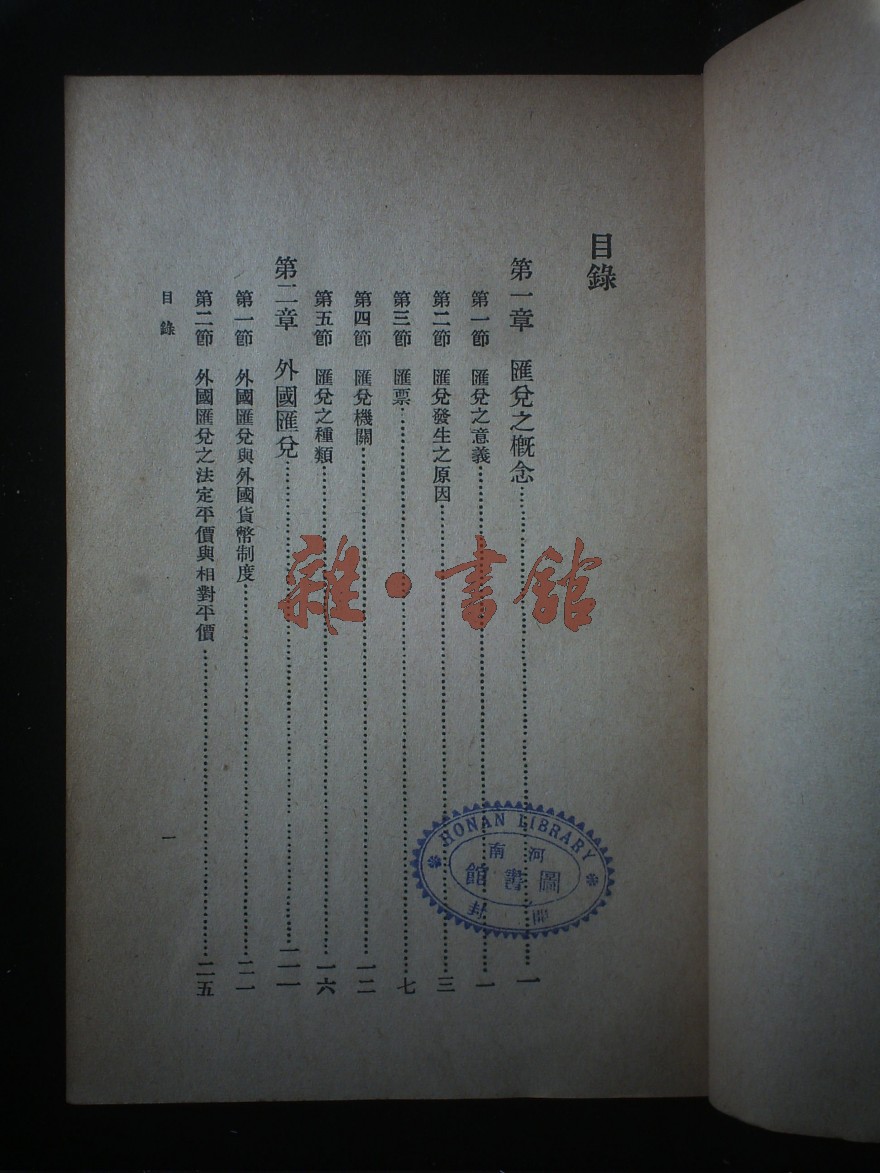 目錄
第一章 匯兌之概念……一
第一節 匯兌之意義……一
第二節 匯兌發生之原因……三
第三節 匯票……七
第四節 匯兌機關……一二
第五節 匯兌之種類……一六
第二章 外國匯兌……二一
第一節 外國匯兌與外國貨幣制度……二一
第二節 外國匯兌之法定平價與相對平價……二五
目錄
一
雜·書館
HONAN LIBRARY
河南
圖書館
開封